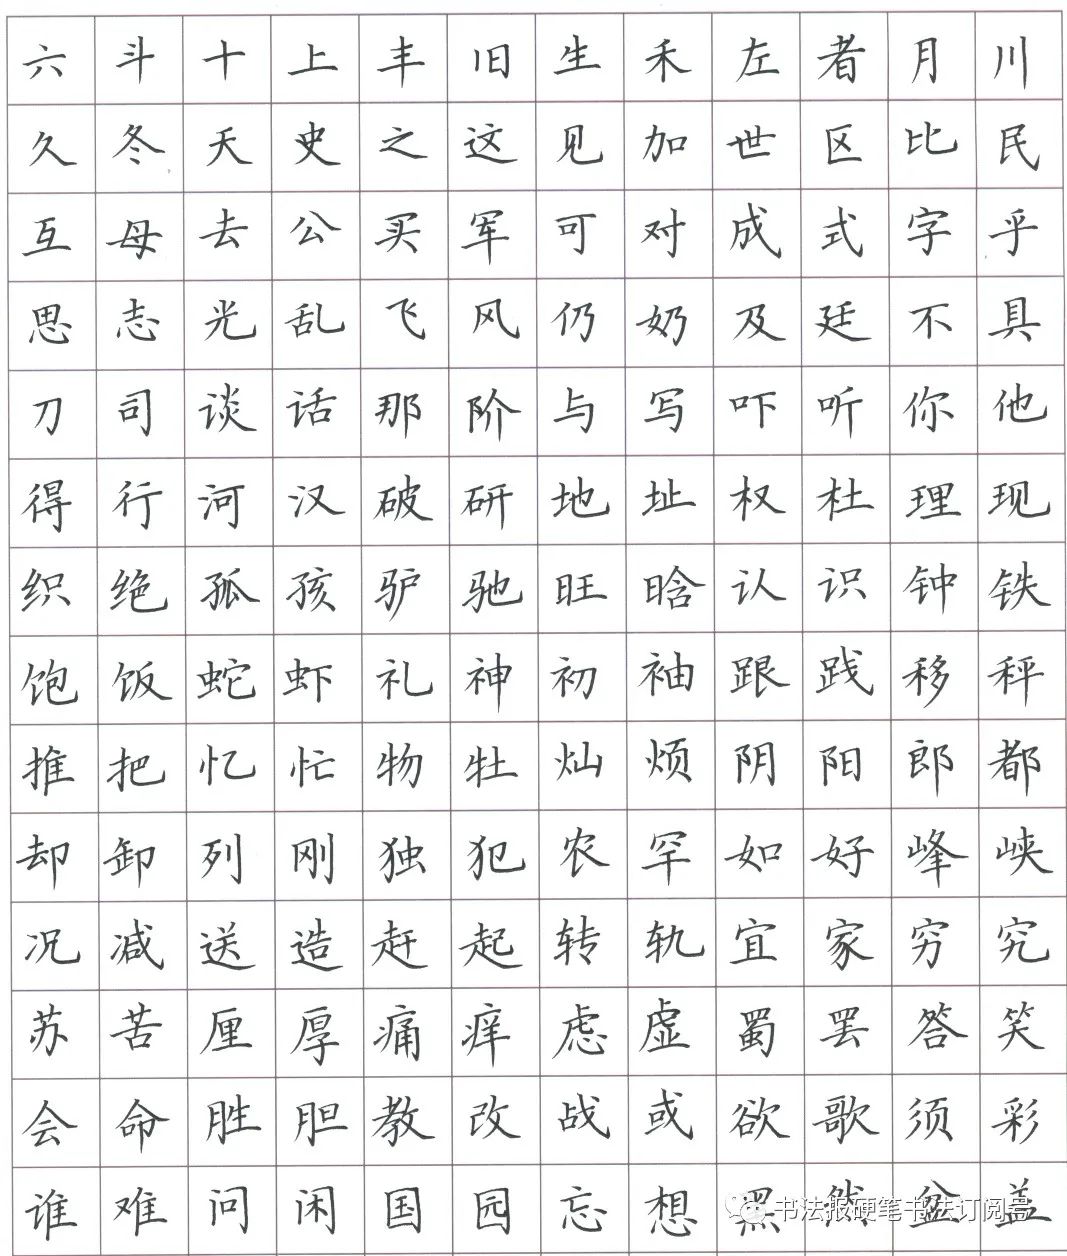 六 斗 十 上 丰 旧 生 禾 左 者 月 川
久 冬 天 史 之 这 见 加 世 区 比 民
互 母 去 公 买 军 可 对 成 式 字 乎
思 志 光 乱 飞 风 仍 奶 及 廷 不 具
刀 司 谈 话 那 阶 与 写 吓 听 你 他
得 行 河 汉 破 研 地 址 权 杜 理 现
织 绝 孤 孩 驴 驰 旺 晗 认 识 钟 铁
饱 饭 蛇 虾 礼 神 初 袖 跟 践 移 秤
推 把 忆 忙 物 牡 灿 烦 阴 阳 郎 都
却 卸 列 刚 独 犯 农 罕 如 好 峰 峡
况 减 送 造 赶 起 转 轨 宜 家 穷 究
苏 苦 厘 厚 痛 痒 虑 虚 蜀 罢 答 笑
会 命 胜 胆 教 改 战 或 欲 歌 须 彩
谁 难 问 闲 国 园 忘 想 黑 然 盆 盖
书法报硬笔书法订阅号